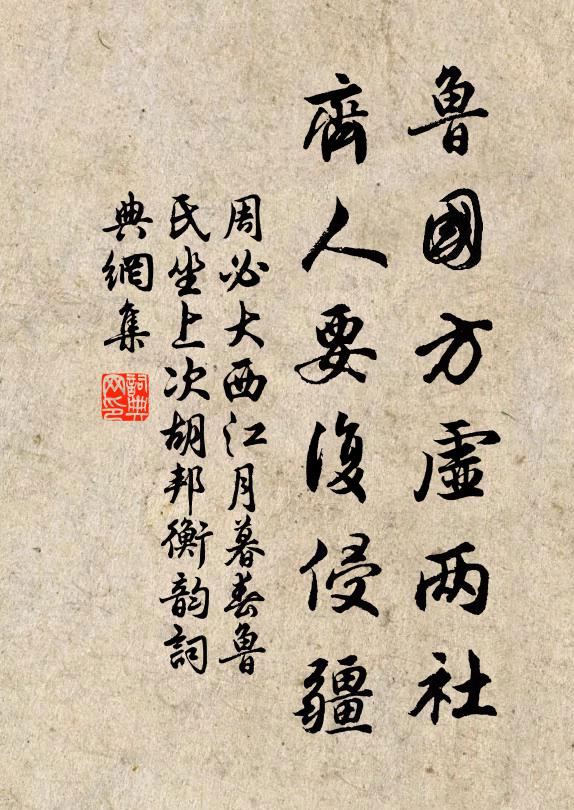 魯國方虛两社
齊人要復侵疆
周必大西江月暮春魯
氏坐上次胡邦衡韵詞
典網集
詞典网印